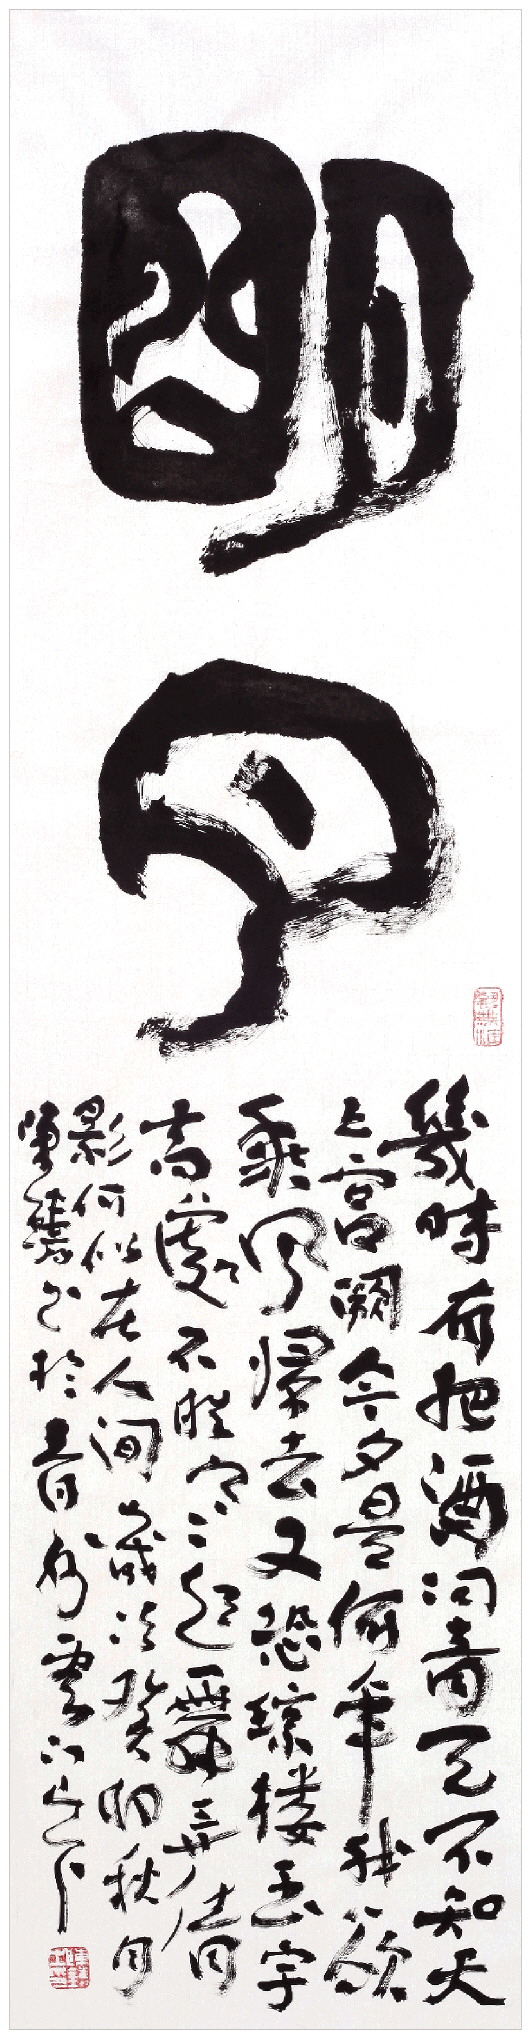 明月
幾時有把酒問青天不知天
上宮闕今夕是何年我欲
乘風歸去又恐瓊樓玉宇
高處不勝寒起舞弄清
影何似在人間歲次癸卯秋月
陳書於青州雲门山下